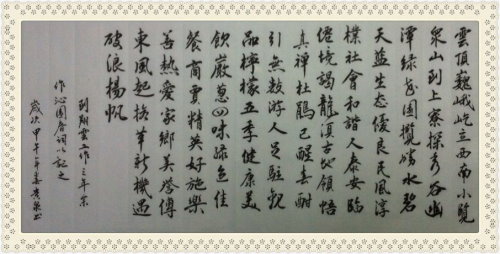 雲頂巍峨屹立西南小覽
衆山到上寨探秀谷幽
潭綠老圃攬勝水碧
天藍生态優良民風淳
樸社會和諧人泰安臨
僊境謁龍滇古地領悟
真禅杜鵑已醒春酣
引無數游人足駐觀
品檸檬五季健康美
飲巖蔥四味綠色佳
餐商賈精英好施樂
善熱愛家鄉美譽傳
東風起 華新機遇
破浪揚帆
到翔雲工作三年余
作沁園春詞以記之
歲次甲午年春